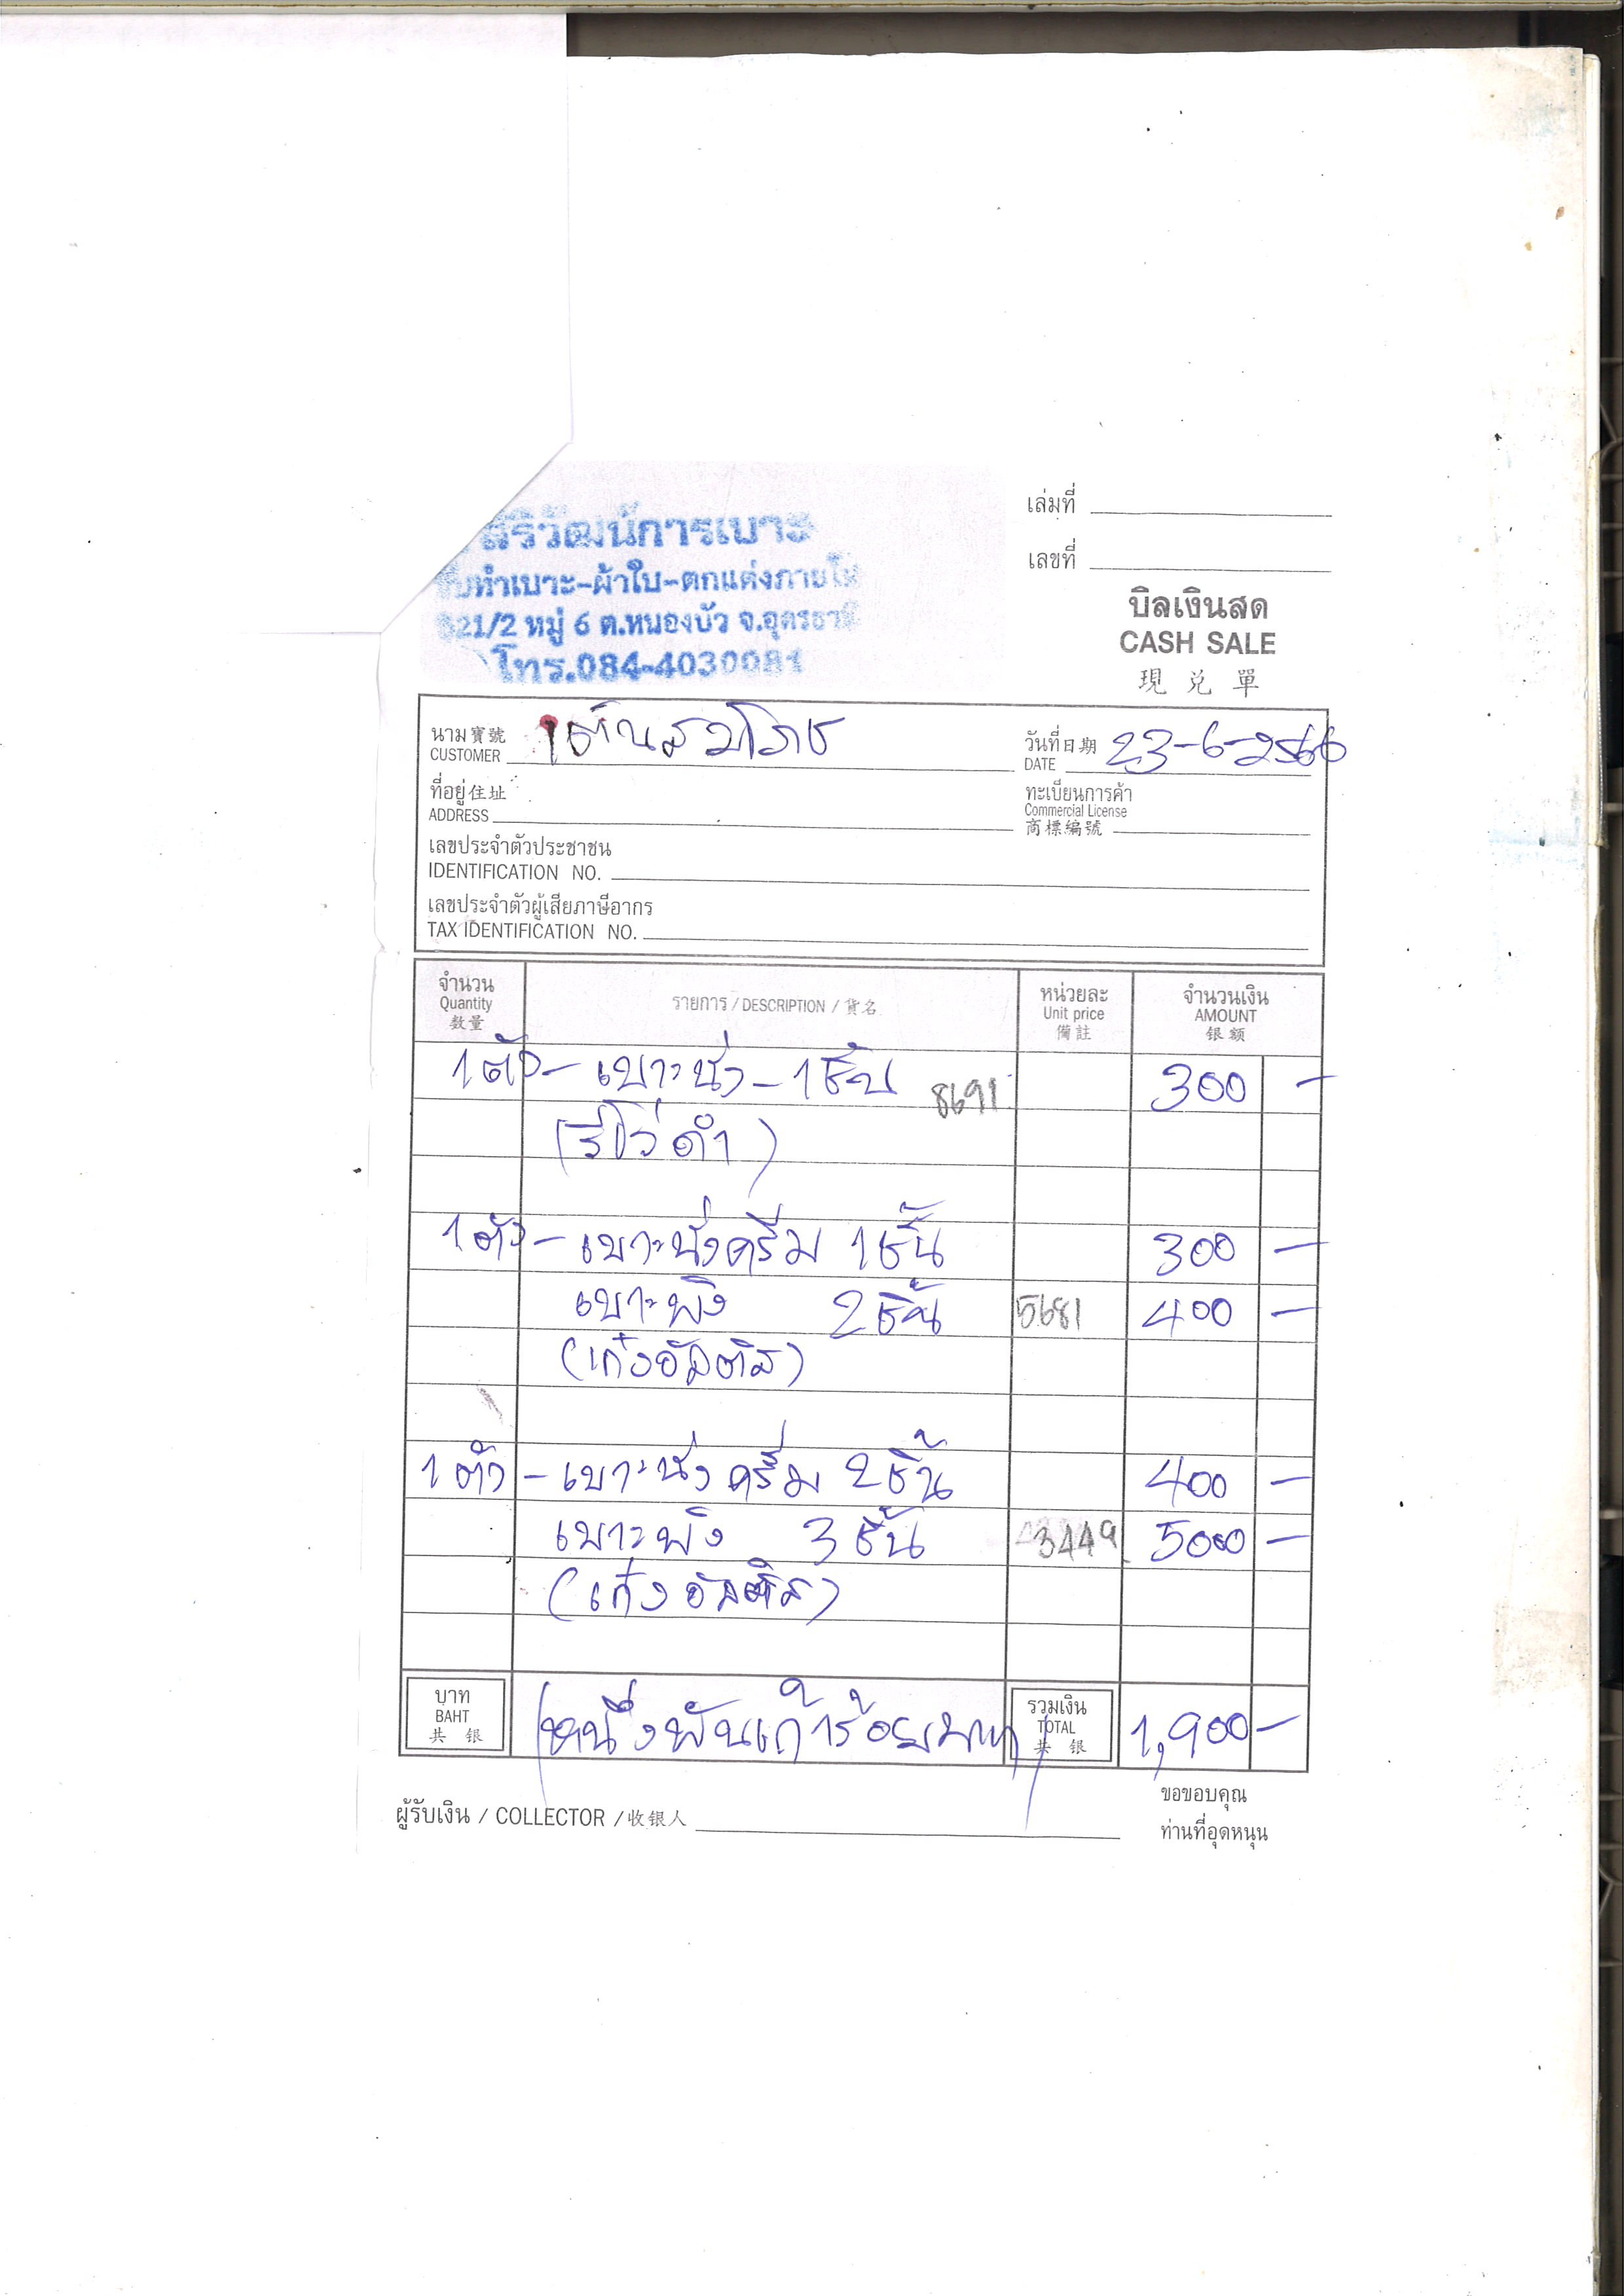 สิริวัฒน์การเบาะ
รับทำเบาะ-ผ้าใบ-ตกแต่งภายใน
321/2 หมู่ 6 ต.หนองบัว จ.อุดรธานี
โทร.084-4030081
เล่มที่
เลขที่
บิลเงินสด
CASH SALE
現兌單
นาม寶號 CUSTOMER เต้นสมโภช
วันที่日期 DATE 23-6-2566
ที่อยู่住址 ADDRESS
ทะเบียนการค้า Commercial License 商標編號
เลขประจำตัวประชาชน
IDENTIFICATION NO.
เลขประจำตัวผู้เสียภาษีอากร
TAX IDENTIFICATION NO.
จำนวน Quantity 数量 รายการ / DESCRIPTION / 貨名 หน่วยละ Unit price 備註 จำนวนเงิน AMOUNT 银额
1 ตัว - เบาะนั่ง - 1 ชิ้น 8691 300 -
(รีโว่ดำ)
1 ตัว - เบาะนั่งครีม 1 ชิ้น 300 -
เบาะพิง 2 ชิ้น 5681 400 -
(เก๋งอัลติส)
1 ตัว - เบาะนั่งครีม 2 ชิ้น 400 -
เบาะพิง 3 ชิ้น 3449 500 -
(เก๋งอัลติส)
บาท BAHT 共银 (หนึ่งพันเก้าร้อยบาท) รวมเงิน TOTAL 共银 1,900 -
ผู้รับเงิน / COLLECTOR / 收银人
ขอขอบคุณ
ท่านที่อุดหนุน